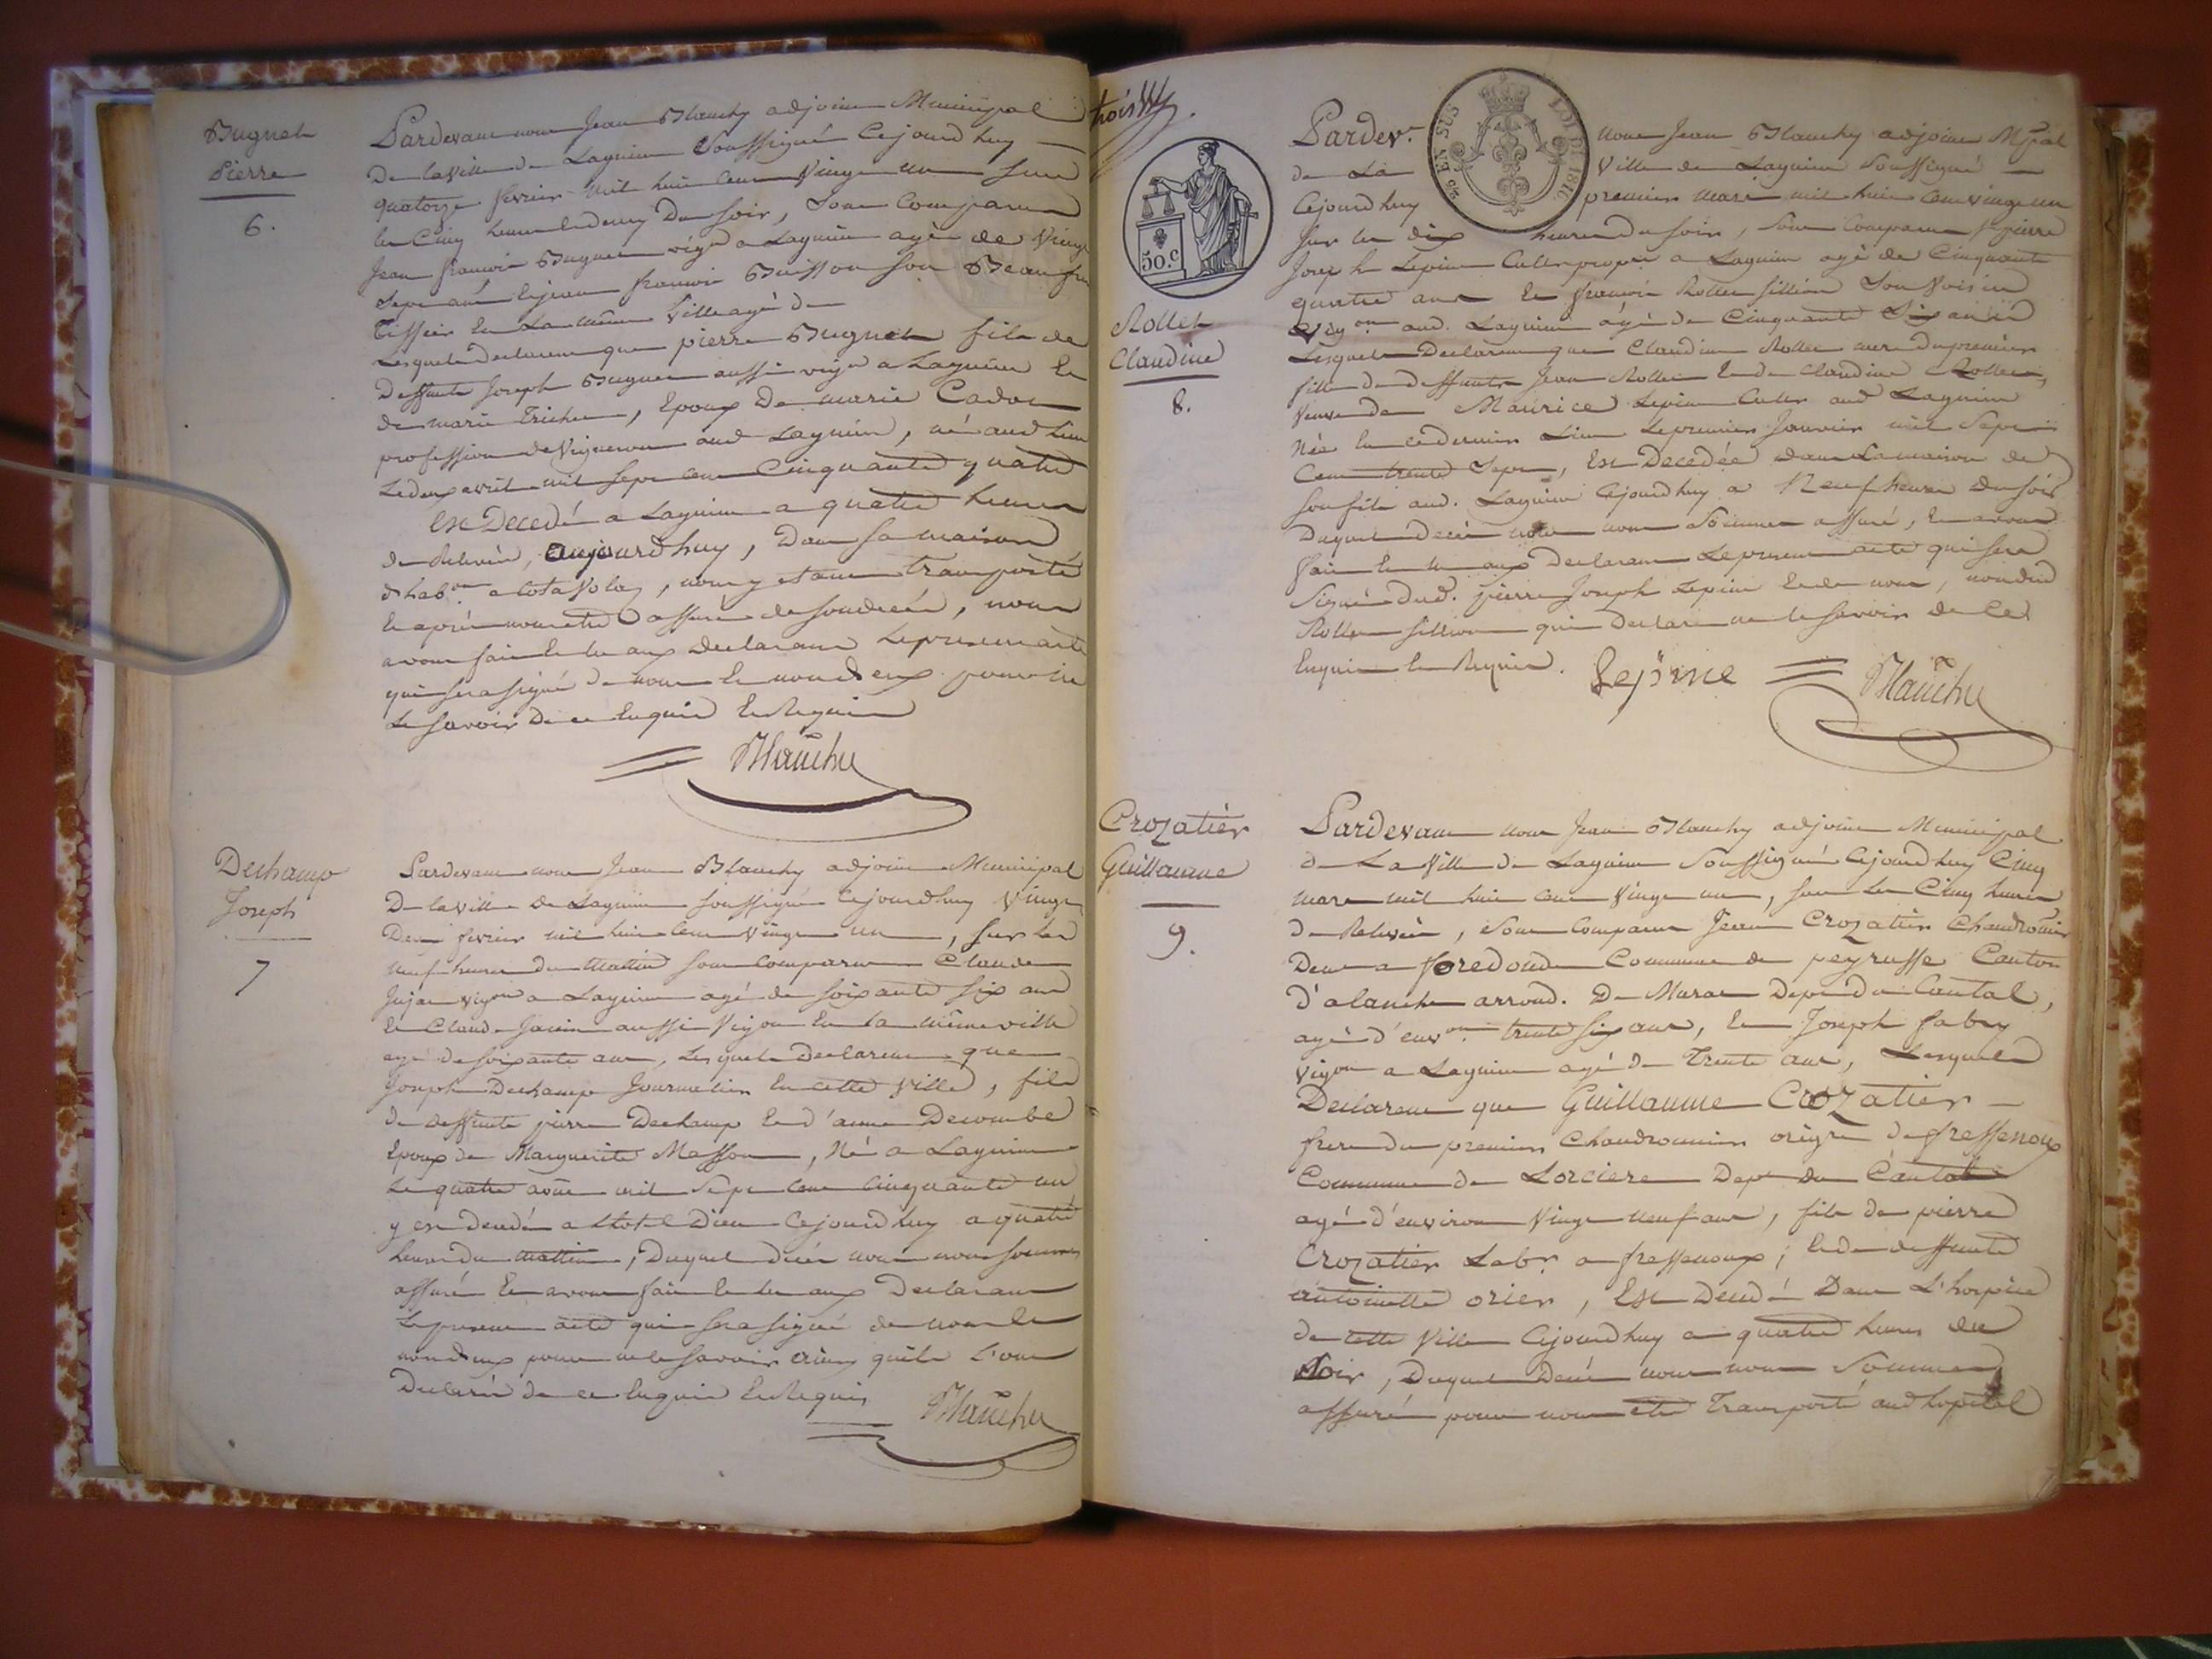 Bugnet
Pierre
6.
Pardevant nous Jean Blanchy adjoint Municipal
De la ville de Lagnieu Soussigné Cejourd'huy
quatorze fevrier mil huit cent Vingt un sur
les Cinq heures et demy Du soir, Sont Comparus
Jean francois Bugnet vign a Lagnieu agé de Vingt
Sept ans et jean francois Buisson son Beaufre
Tissier en La même Ville agé de
Lesquels Declarent que pierre Bugnet fils de
Deffunts Joseph Bugnet aussi vign a Lagnieu et
de marie Trichon, Epoux De marie Cadot
profession de Vigneron aud Lagnieu, né aud lieu
Le deux avril mil sept cent Cinquante quatre
Est Decedé a Lagnieu a quatre heures
de Relevée, aujourd'huy, Dans sa maison
d'habon a cota Voloz, nous y etant transporté
et aprés nous etre assuré de son decés, nous
avons fait et lu aux Declarants Le present acte
qui sera signé de nous et non d'eux pour ne
Le savoir De ce Enquis et Requis
Blanchy
Dechamp
Joseph
7
Pardevant nous Jean Blanchy adjoint Municipal
De la ville de Lagnieu soussigné Cejourd'huy Vingt
Deux fevrier mil huit Cent Vingt un, sur les
neuf heures du mattin sont comparus Claude
Jujat vigon a Lagnieu agé de soixante six ans
et Claude Jacin aussi Vigon en la même ville
agé de soixante ans, Lesquels Declarent que
Joseph Dechamp Journalier en cette Ville, fils
de deffunts pierre Dechamp et d'anne Decombe
Epoux de Marguerite Masson, Né a Lagnieu
Le quatre août mil Sept Cent Cinquante un
y est decedé a L'hotel Dieu Cejourd'huy a quatre
heures du mattin, Duquel decés nous nous sommes
assuré et avons fait et lu aux Declarans
Le present acte qui sera signé de nous et
non d'eux pour ne le savoir ainsy qu'ils L'ont
Declaré de ce Enquis et Requis
Blanchy
trois
50.c
Rollet
Claudine
8.
2/10 EN SUS
LOI DE 1816
Pardevt nous Jean Blanchy adjoint Mpal
de La Ville de Lagnieu Soussigné
Cejourd'huy premier mars mil huit cent vingt un
sur les dix heures du soir, Sont Comparus Sr pierre
Joseph Lepine Cultr propre a Lagnieu agé de Cinquante
quatre ans et francois Rollet fillion Son Voisin
Vigon aud. Lagnieu agé de Cinquante Six ans
Lesquels Declarent que Claudine Rollet mere du premier
fille de deffunts Jean Rollet et de Claudine Rollet,
veuve de Maurice Lepine Cultr aud Lagnieu
Née en ce dernier Lieu Le premier Janvier mil Sept
Cent trente Sept, Est Decedée dans La maison de
son fils aud. Lagnieu Cejourd'huy a Neuf heures du soir
Duquel decés nous nous Sommes assuré, et avons
fait et lu aux Declarans Le present acte qui sera
Signé dud. pierre Joseph Lepine et de nous, non dud
Rollet fillion qui Declare ne le savoir de Ce
Enquis et Requis. Lepine Blanchy
Crozatier
Guillaume
9.
Pardevant nous Jean Blanchy adjoint Municipal
de La Ville de Lagnieu Soussigné Cejourd'huy Cinq
mars mil huit cent Vingt un, sur les Cinq heures
de Relevée, Sont Comparus Jean Crozatier Chaudronier
Demt a foredonde Commune de peyrusse Canton
d'alanche arrond. De Murat Dept du Cantal,
agé d'envon trente six ans, et Joseph fabry
vigon a Lagnieu agé de Trente ans, Lesquels
Declarent que Guillaume Crozatier
frere du premier Chaudronnier origre de fressenoux
Commune de Lorciere Dept du Cantal
agé d'environ Vingt neuf ans, fils de pierre
Crozatier Labr. a fressenoux; et de deffunte
antoinette orier, Est Decedé Dans L'hospice
de cette Ville Cejourd'huy a quatre heures du
Soir, Duquel Decés nous nous Sommes
assuré pour nous etre Transporté aud hopital